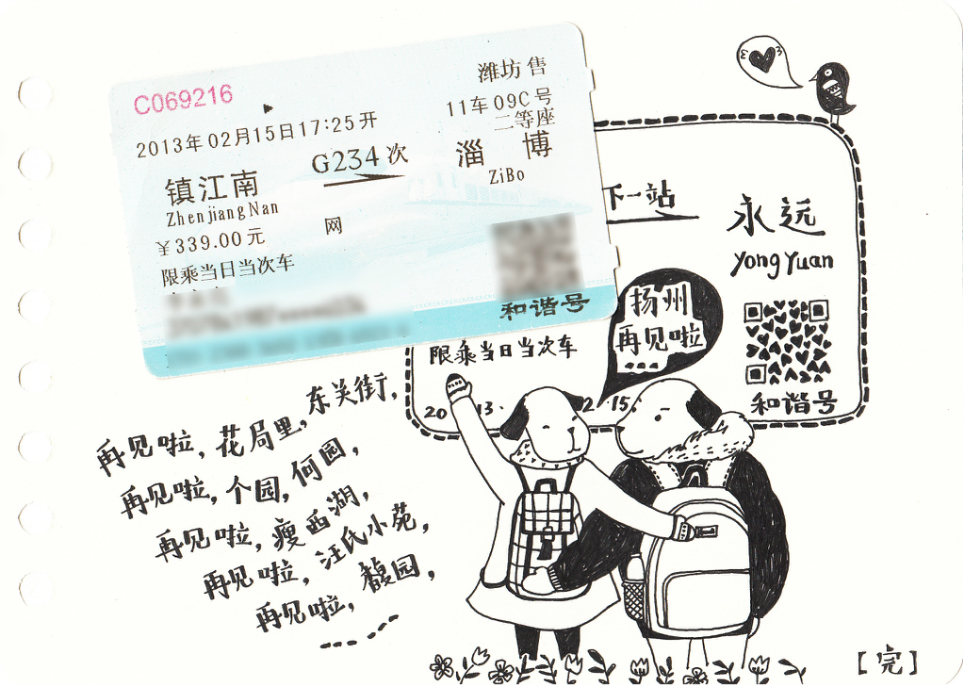 C069216
潍坊 售
2013年02月15日17:25开
11车 09C号
二等座
镇江南
G234 次
淄 博
ZhenjiangNan
ZiBo
￥339.00元
网
限乘当日当次车
和谐号
下一站
永远
YongYuan
扬州
再见啦
...
限乘当日当次车
和谐号
20 13. 2.15.
再见啦，花局里，东关街，
再见啦，个园，何园，
再见啦，瘦西湖，
再见啦，汪氏小苑，
再见啦，馥园，
【完】